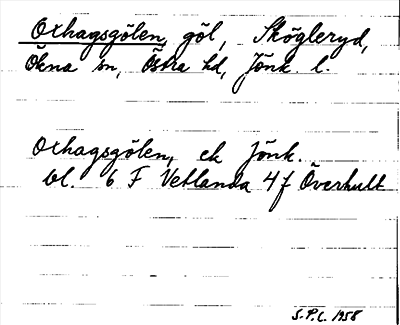 Oxhagsgölen, göl, Skögleryd,
Ökna sn, Östra hd, Jönk. l.
Oxhagsgölen, ek Jönk.
bl. 6 F Vetlanda 4 f Överhult
S.P.L. 1958